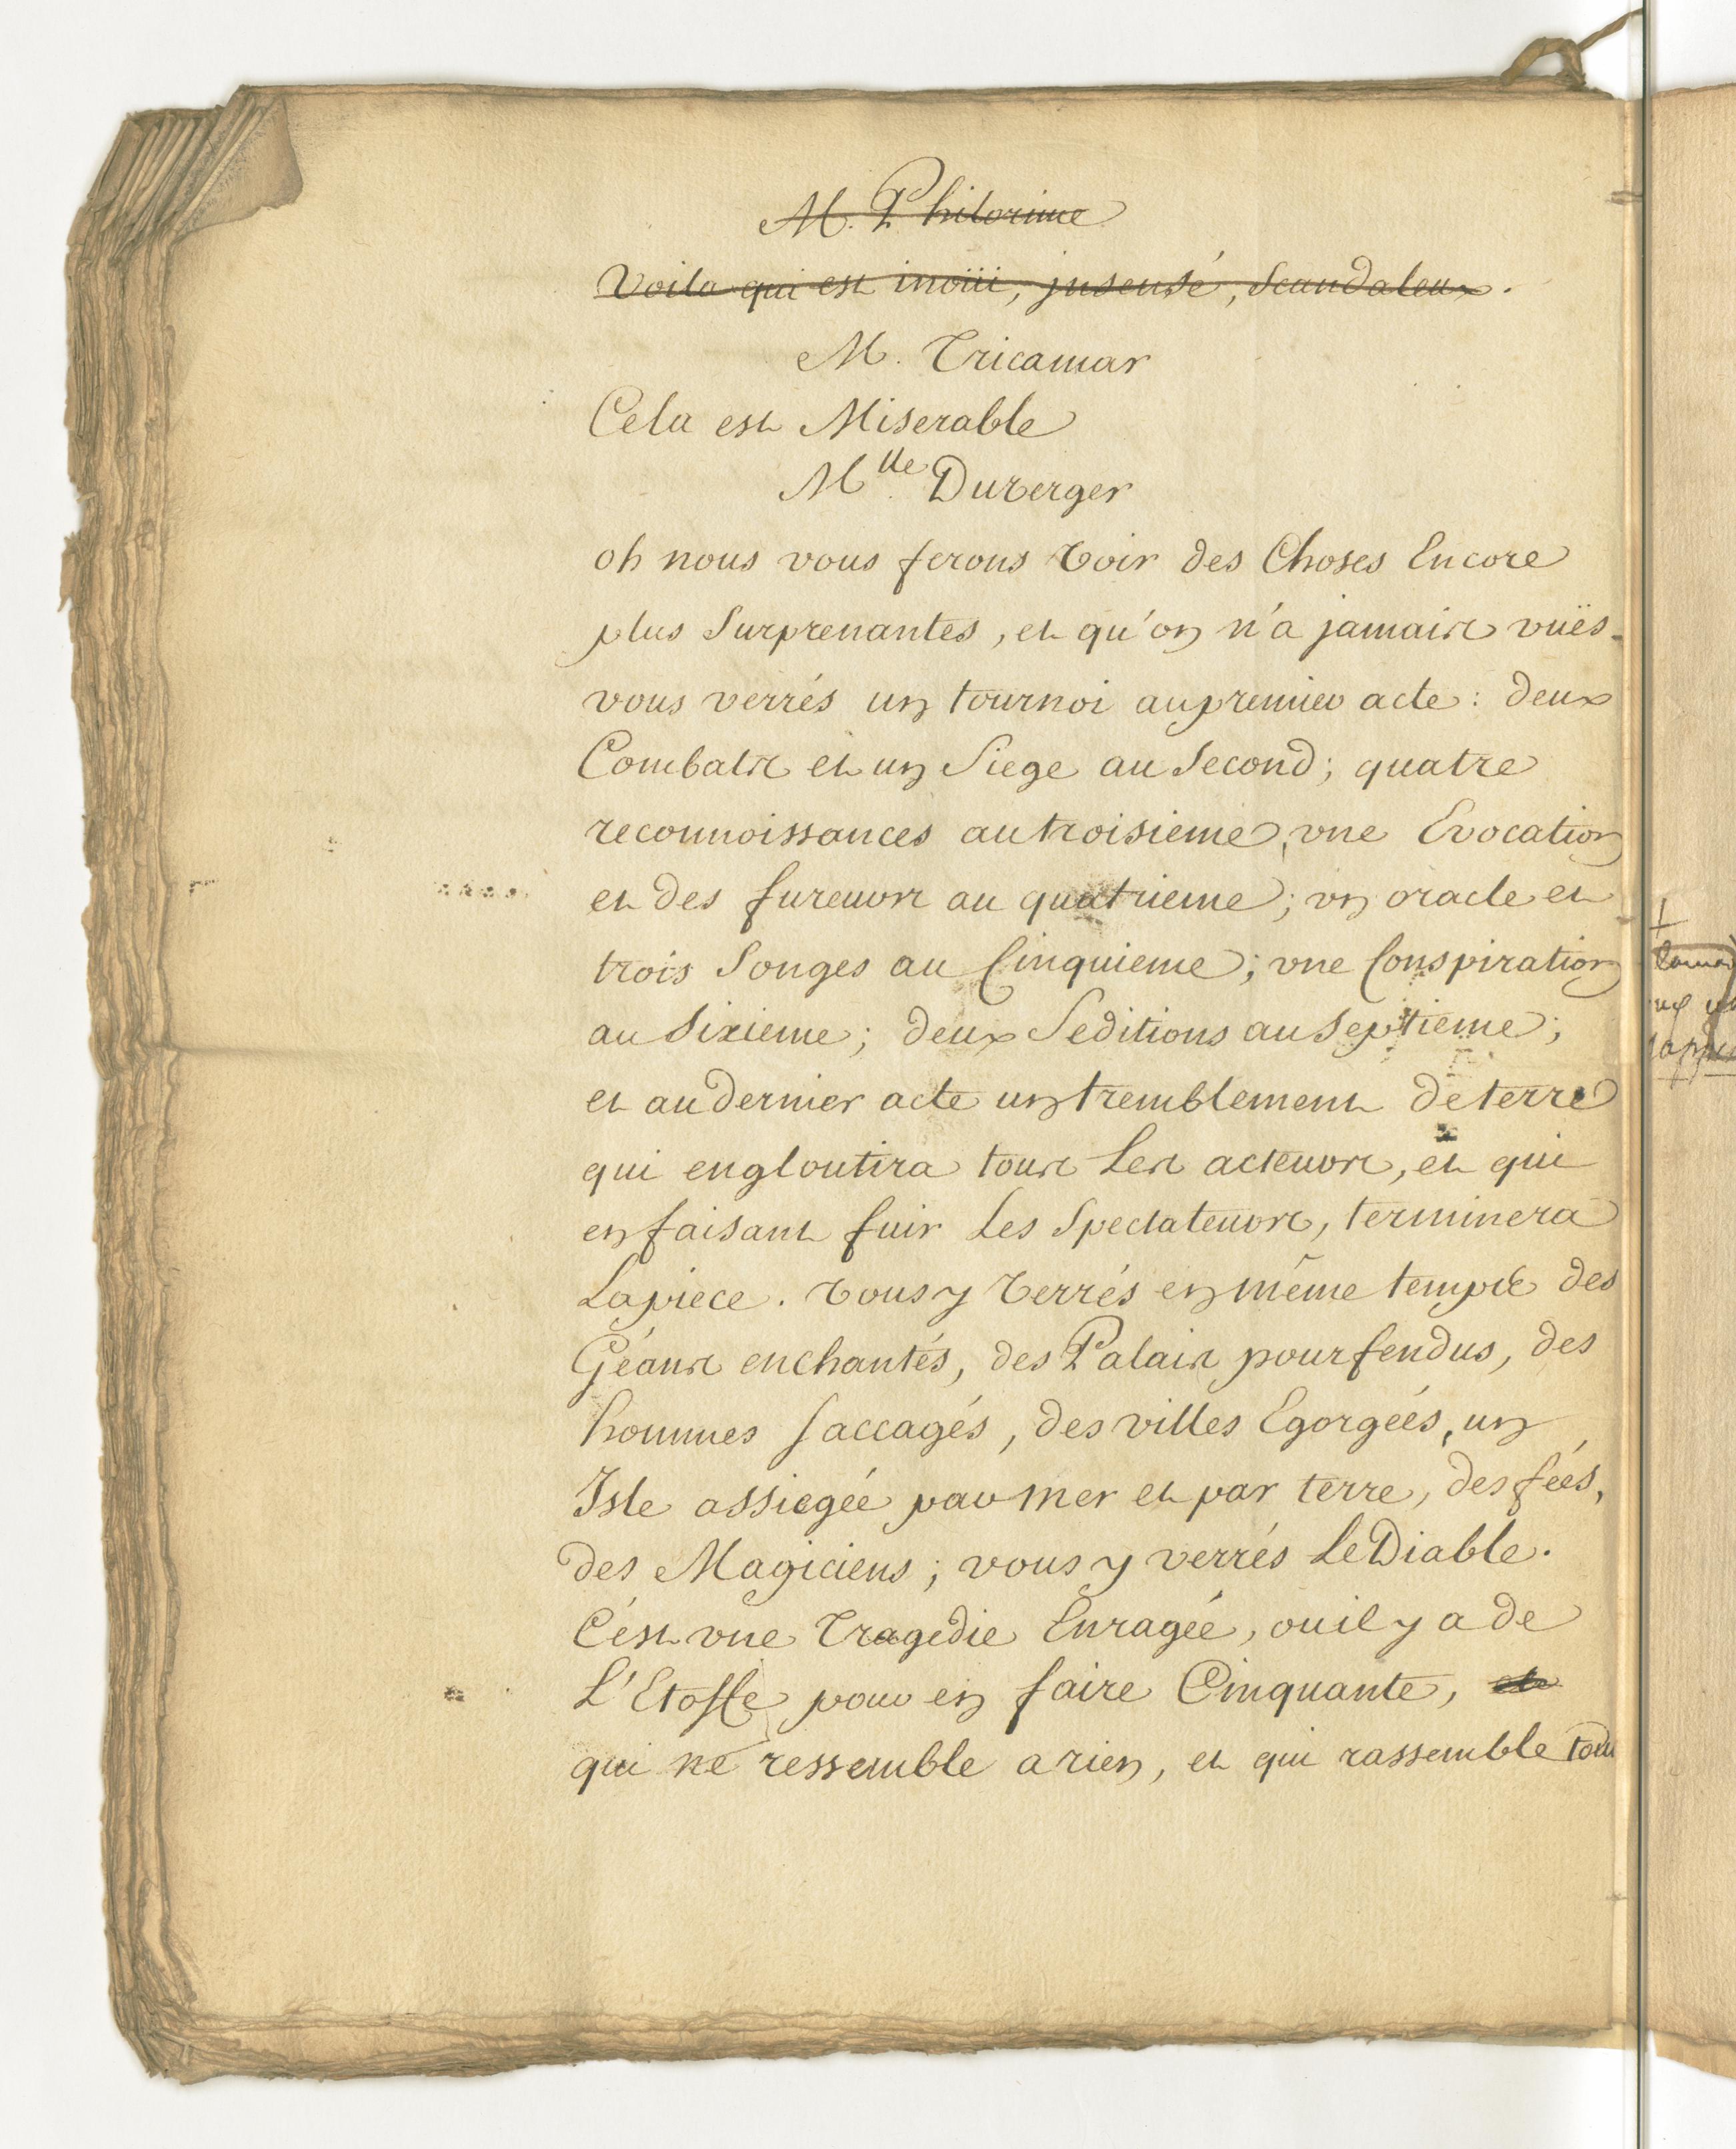 M. Philorime
Voila qui est inoüi, insensé, Scandaleux.
M. Tricamar
Cela est Miserable
Mlle Duverger
oh nous vous ferons voir des Choses Encore
plus Surprenantes, et qu'on n'a jamais vuës.
vous verrés un tournoi au premier acte: deux
Combats et un Siege au Second; quatre
reconnoissances au troisieme, vne Evocation
et des fureurs au quatrieme; vn oracle et
trois Songes au Cinquieme; vne Conspiration
au Sixieme; deux Seditions au Septieme;
et au dernier acte un tremblement de terre
qui engloutira tous Les acteurs, et qui
en faisant fuir Les Spectateurs, terminera
La piece. vous y verrés en même temps des
Géans enchantés, des Palais pourfendus, des
hommes Saccagés, des villes Egorgées, un
Isle assiegée par mer et par terre, des fées,
des Magiciens; vous y verrés Le Diable.
C'est vne Tragedie Enragée, ou il y a de
L'Etoffe pour en faire Cinquante, et
qui ne ressemble a rien, et qui rassemble tout